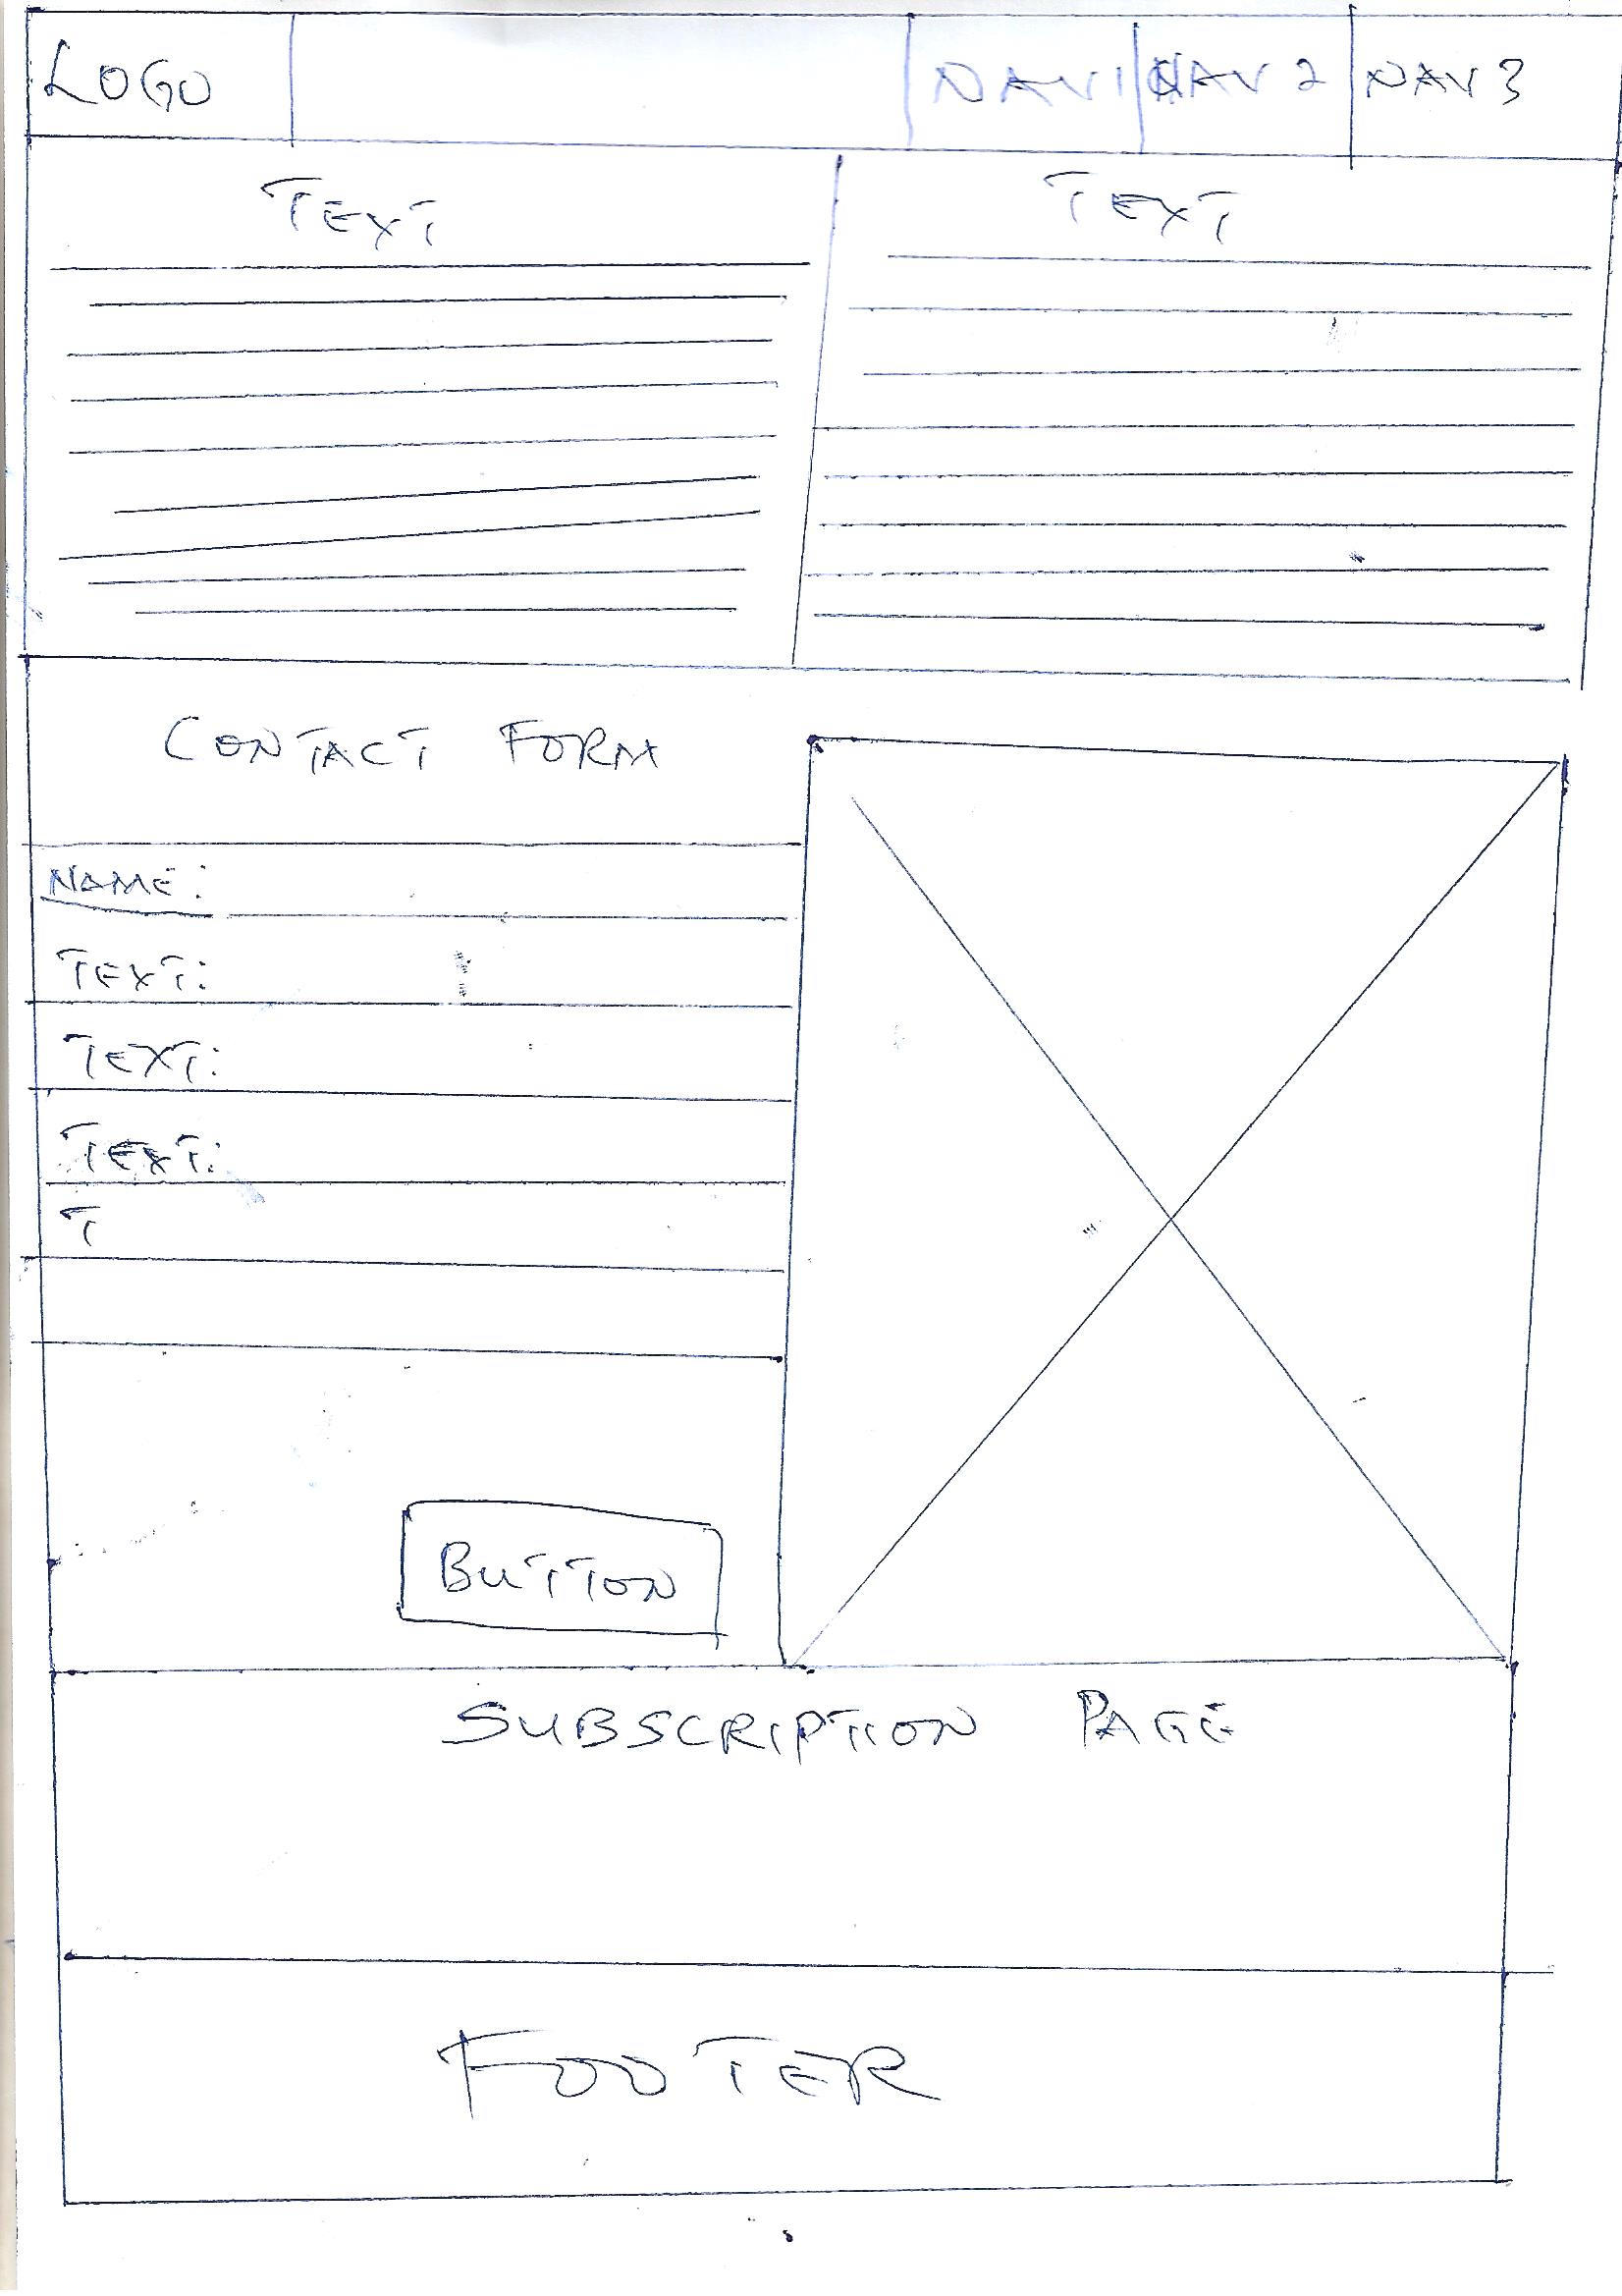 LOGO NAV1 NAV 2 NAV 3
TEXT TEXT
CONTACT FORM
NAME:
TEXT:
TEXT:
TEXT:
T
BUTTON
SUBSCRIPTION PAGE
FOOTER